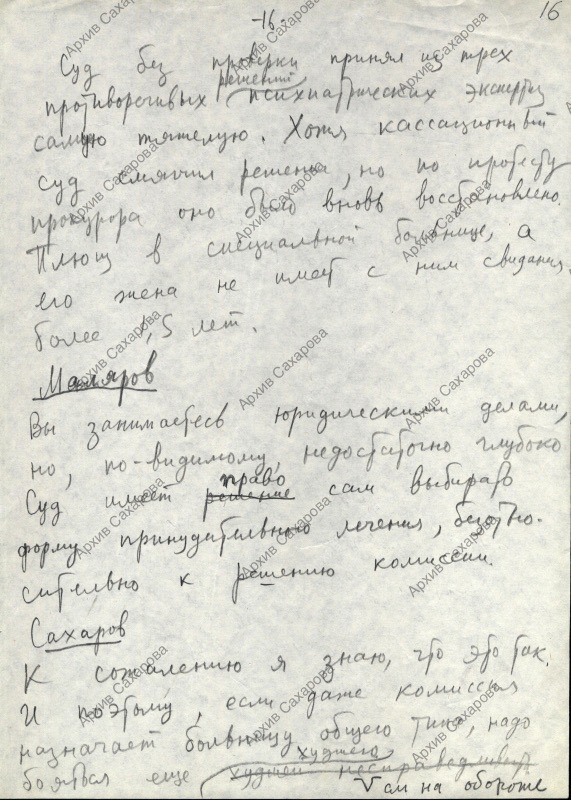 -16-
16
Суд без проверки принял из трех
решений
противоречивых психиатрических экспертиз
самую тяжелую. Хотя кассационный
суд смягчил решение, но по протесту
прокурора оно было вновь восстановлено.
Плющ в специальной больнице, а
его жена не имеет с ним свидания
более 1,5 лет.
Маляров
Вы занимаетесь юридическими делами,
но, по-видимому, недостаточно глубоко
право
Суд имеет решение сам выбирать
форму принудительного лечения, безотно-
сительно к решению комиссии.
Сахаров
К сожалению я знаю, что это так.
И поэтому, если даже комиссия
назначает больницу общего типа, надо
худшего
бояться еще худшей несправедливости
V см на обороте